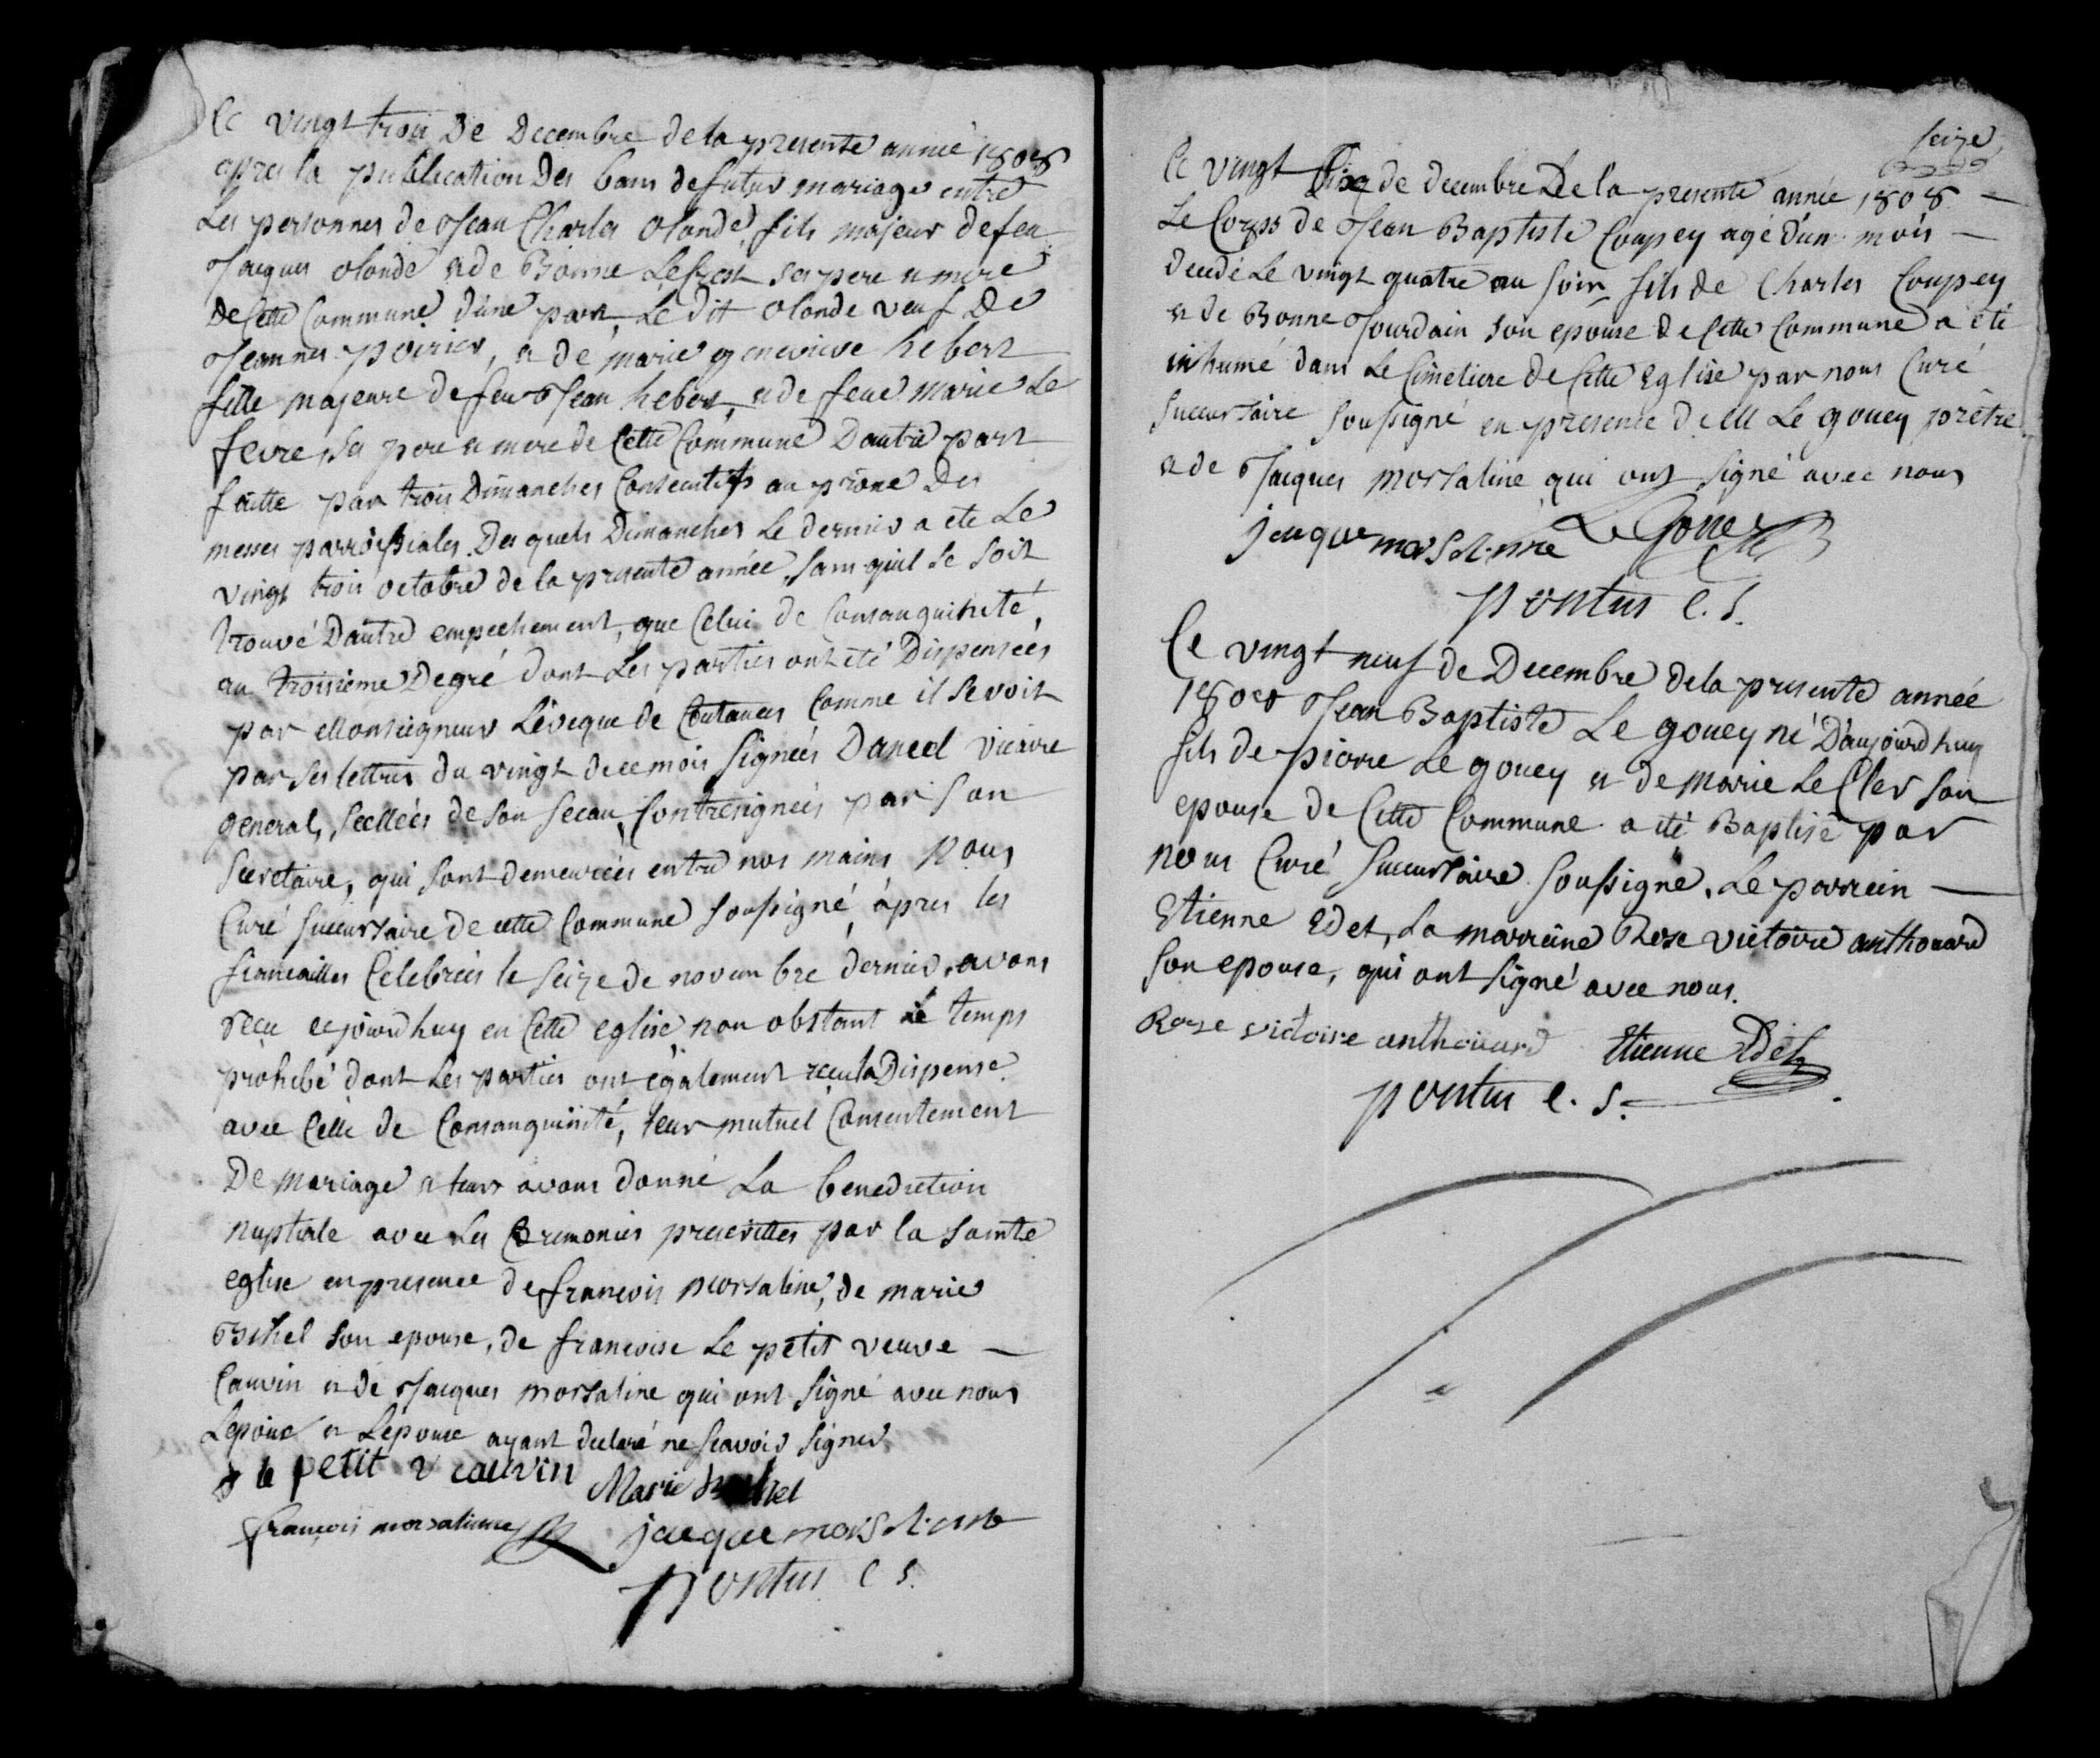 Ce vingt trois De Decembre de la presente anneé 1808
apres la publication Des bans de futur mariage entre
Les personnes de Jean Charles olonde, fils majeur de feu
Jacques olonde et de Bonne ses pere et mere
De Cette Commune d'une part, Le dit olonde veuf De
Jeanne poirier, et de marie genevieve hebert
fille majeure de feu Jean hebert, et de feue marie Le
fevre, ses pere et mere de Cette Commune D'autre part
faitte par trois Dimanches Consecutifs au prone Des
messes parroissiales Des quels Dimanches Le dernier a ete Le
vingt trois octobre de la presente année, sans quil se soit
trouvé D'autre empechement, que Celui de Consanguinité,
au troisieme Degré dont Les parties ont été Dispensées
par Monseigneur L'eveque de Coutances Comme il se voit
par ses lettres du vingt de ce mois signeés Daneel vicaire
general, scelleés de son sceau, Contresigneés par son
secretaire, qui sont demeureés entre nos mains, Nous
Curé succursaire de cette Commune soussigné, apres les
fiancailles Celebreés le seize de novembre dernier, avons
recu cejourdhuy en Cette eglise, non obstant Le temps
prohibé dont Les parties ont également recu la Dispense
avec Celle de Consanguinité, leur mutuel Consentement
De mariage et leur avons donné La benediction
nuptiale avec Les Ceremonies prescrittes par la sainte
eglise en presence de francois morsaline, de marie
Bihel son epouse, de francoise Le petit veuve
Cauvin et de Jacques morsaline qui ont signé avec nous
L'epoux et L'epouse ayant declaré ne scavoir signer.
f le petit v cauvin Marie
françois morsalinne jacque
pontus C S.
seize
Ce vingt de decembre De la presente année 1808
Le Corps de Jean Baptiste Coupey agé d'un mois
decedé Le vingt quatre au soir, fils de Charles Coupey
et de Bonne Jourdain son epouse de Cette Commune a été
inhumé dans Le Cimetiere de Cette Eglise par nous Curé
succursaire soussigné en presence de M Le gouey prêtre
et de Jacques morsaline qui ont signé avec nous
jacque Le Gouey
pontus C. S.
Ce vingt neuf de Decembre de la presente année
1808 Jean Baptiste Le gouey né D'aujourdhuy
fils de pierre Le gouey et de marie Le Cler son
epouse de Cette Commune a été Baptisé par
nous Curé succursaire soussigné, Le parrein
Etienne Edet, La marreine Rose victoire anthouard
son epouse, qui ont signé avec nous.
Rose victoire anthouard Etienne Edet
pontus C. S.